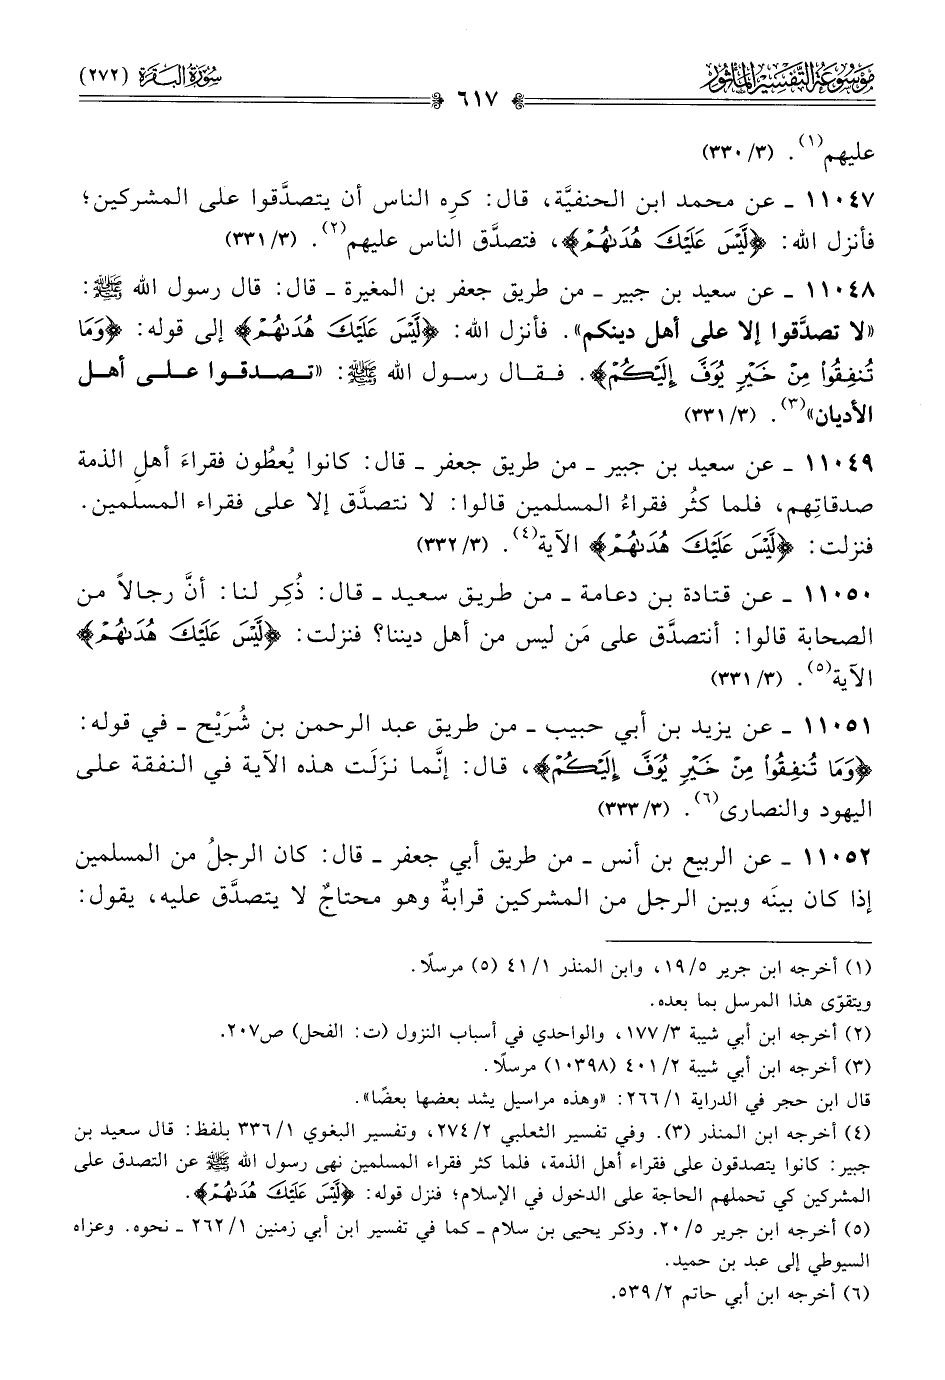 موسوعة التفسير المأثور
سورة البقرة (٢٧٢)
٦١٧
عليهم(١). (٣/ ٣٣٠)
١١٠٤٧ ـ عن محمد ابن الحنفيَّة، قال: كرِه الناس أن يتصدَّقوا على المشركين؛
فأنزل الله: ﴿لَّيْسَ عَلَيْكَ هُدَىٰهُمْ﴾، فتصدَّق الناس عليهم(٢). (٣/ ٣٣١)
١١٠٤٨ ـ عن سعيد بن جبير ـ من طريق جعفر بن المغيرة ـ قال: قال رسول الله ﷺ:
«لا تصدَّقوا إلا على أهل دينكم». فأنزل الله: ﴿لَّيْسَ عَلَيْكَ هُدَىٰهُمْ﴾ إلى قوله: ﴿وَمَا
تُنفِقُوا۟ مِنْ خَيْرٍ يُوَفَّ إِلَيْكُمْ﴾. فـقـال رسـول الله ﷺ: «تـصـدقـوا عـلـى أهـل
الأديان»(٣). (٣/ ٣٣١)
١١٠٤٩ ـ عن سعيد بن جبير ـ من طريق جعفر ـ قال: كانوا يُعطُون فقراءَ أهلِ الذمة
صدقاتِهم، فلما كثُر فقراءُ المسلمين قالوا: لا نتصدَّق إلا على فقراء المسلمين.
فنزلت: ﴿لَّيْسَ عَلَيْكَ هُدَىٰهُمْ﴾ الآية(٤). (٣/ ٣٣٢)
١١٠٥٠ ـ عن قتادة بن دعامة ـ من طريق سعيد ـ قال: ذُكِر لنا: أنَّ رجالاً من
الصحابة قالوا: أنتصدَّق على مَن ليس من أهل ديننا؟ فنزلت: ﴿لَّيْسَ عَلَيْكَ هُدَىٰهُمْ﴾
الآية(٥). (٣/ ٣٣١)
١١٠٥١ ـ عن يزيد بن أبي حبيب ـ من طريق عبد الرحمن بن شُرَيْح ـ في قوله:
﴿وَمَا تُنفِقُوا۟ مِنْ خَيْرٍ يُوَفَّ إِلَيْكُمْ﴾، قال: إنَّما نزلَت هذه الآية في النفقة على
اليهود والنصارى(٦). (٣/ ٣٣٣)
١١٠٥٢ ـ عن الربيع بن أنس ـ من طريق أبي جعفر ـ قال: كان الرجلُ من المسلمين
إذا كان بينَه وبين الرجل من المشركين قرابةٌ وهو محتاجٌ لا يتصدَّق عليه، يقول:
(١) أخرجه ابن جرير ٥/ ١٩، وابن المنذر ١/ ٤١ (٥) مرسلًا.
ويتقوّى هذا المرسل بما بعده.
(٢) أخرجه ابن أبي شيبة ٣/ ١٧٧، والواحدي في أسباب النزول (ت: الفحل) ص٢٠٧.
(٣) أخرجه ابن أبي شيبة ٢/ ٤٠١ (١٠٣٩٨) مرسلًا.
قال ابن حجر في الدراية ١/ ٢٦٦: «وهذه مراسيل يشد بعضها بعضًا».
(٤) أخرجه ابن المنذر (٣). وفي تفسير الثعلبي ٢/ ٢٧٤، وتفسير البغوي ١/ ٣٣٦ بلفظ: قال سعيد بن
جبير: كانوا يتصدقون على فقراء أهل الذمة، فلما كثر فقراء المسلمين نهى رسول الله ﷺ عن التصدق على
المشركين كي تحملهم الحاجة على الدخول في الإسلام؛ فنزل قوله: ﴿لَّيْسَ عَلَيْكَ هُدَىٰهُمْ﴾.
(٥) أخرجه ابن جرير ٥/ ٢٠. وذكر يحيى بن سلام ـ كما في تفسير ابن أبي زمنين ١/ ٢٦٢ ـ نحوه. وعزاه
السيوطي إلى عبد بن حميد.
(٦) أخرجه ابن أبي حاتم ٢/ ٥٣٩.